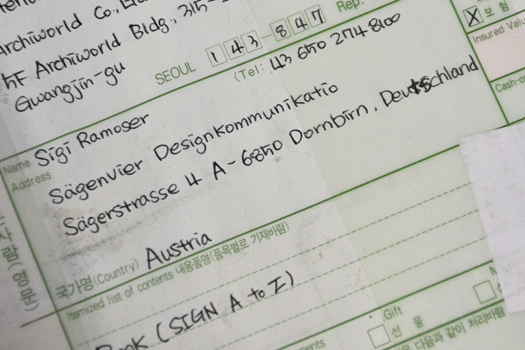 Archiworld Co.,
4F Archiworld Bldg., 315-
Gwangjin-gu
SEOUL 143-847
(Tel: 43 650 274 8100
Rep.
보 험
Insured Value
Name Sigi Ramoser
Address
Sägenvier Designkommunikatio
Sägerstrasse 4 A-6850 Dornbirn, Deutschland
국가명(Country) Austria
Itemized list of contents 내용품명(품목별로 기재바람)
Book (SIGN A to Z)
Gift
선 물
다음과 같이 처리바람